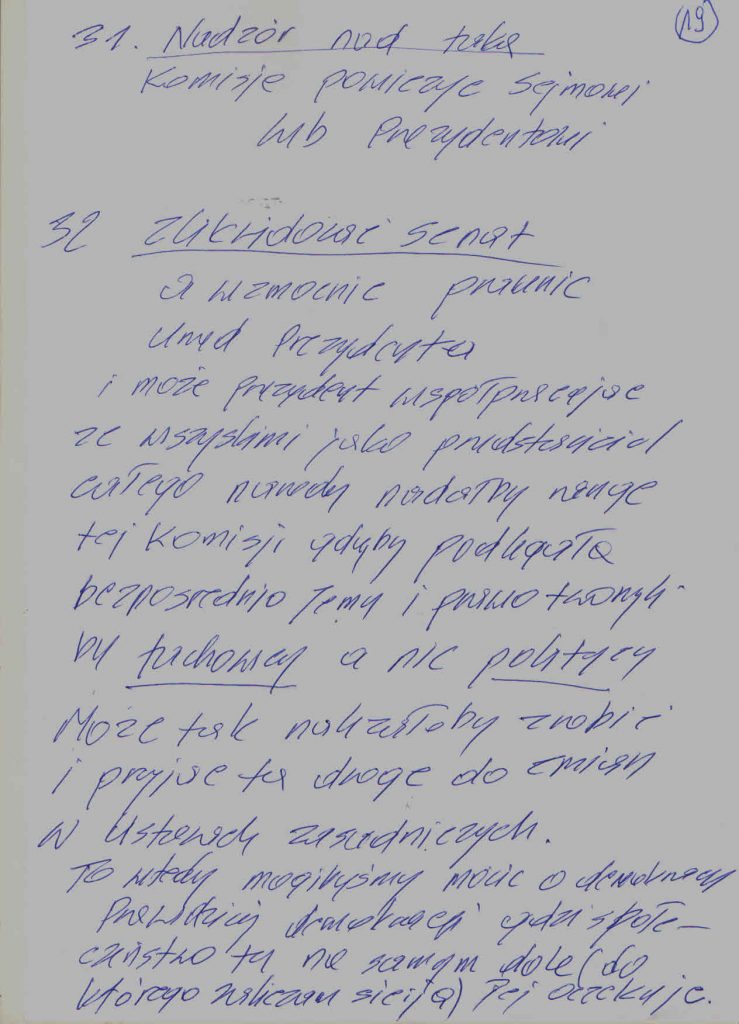 19
31. Nadzór nad taką
Komisje powiezyc Sejmowi
lub Prezydentowi
32 Zlikwidować Senat
a wzmocnic prawnie
Urząd Prezydenta
i może prezydent współpracując
ze wszystkimi jako przedstawiciel
całego narodu nadałby rangę
tej Komisji gdyby podlegała
bezpośrednio Temu i prawo tworzyli-
by fachowcy a nie politycy
Może tak należałoby zrobić
i przyjąć tą drogę do zmian
w Ustawach zasadniczych.
To wtedy moglibyśmy mówic o demokracji
Prawdziwej demokracji gdzi społe-
czeństwo tu na samym dole (do
którego zaliczam się i ja) Tej oczekuje.